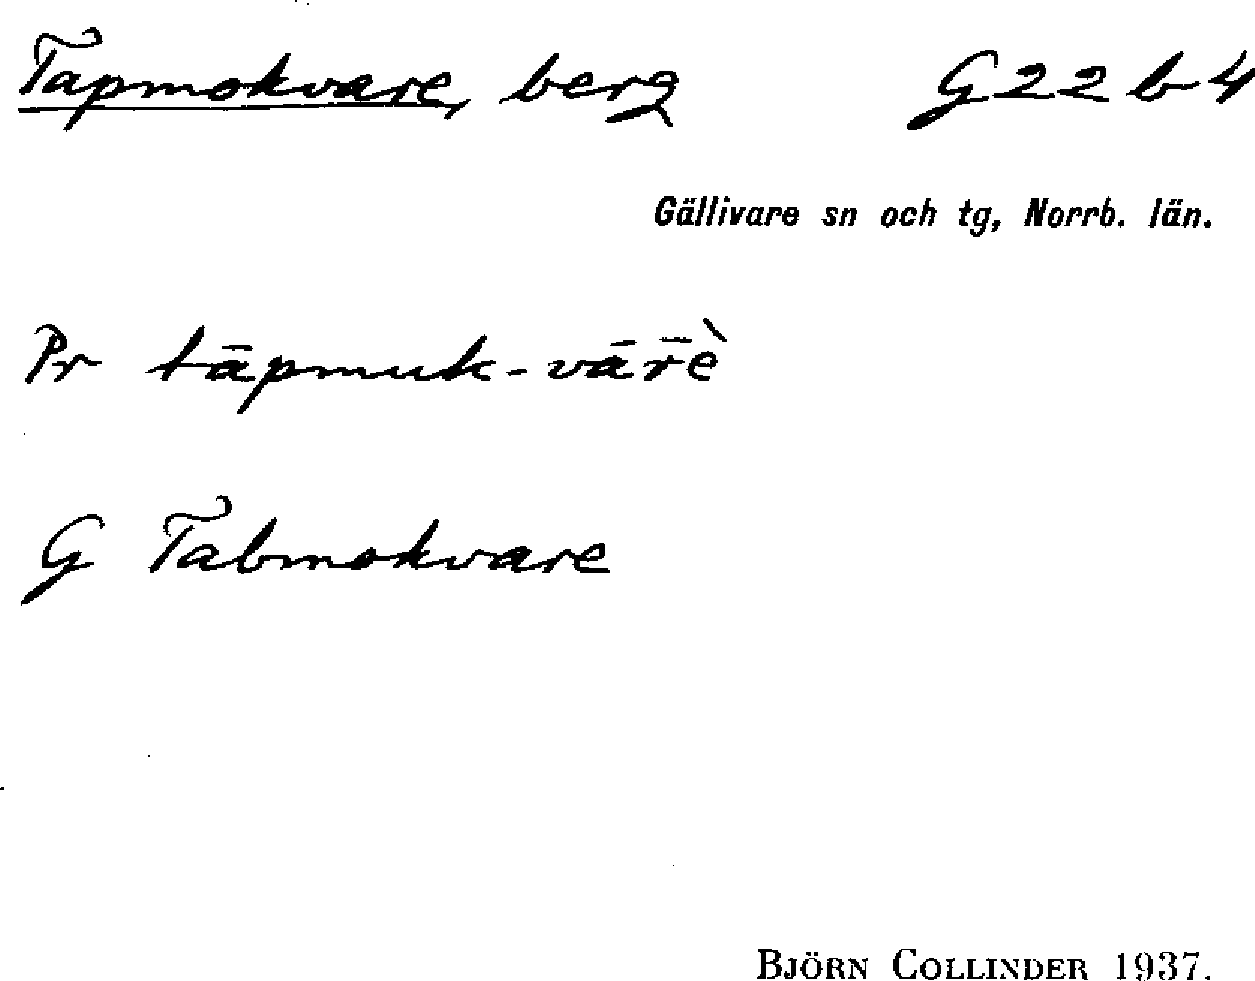 Tapmokvare, berg G22b4
Gällivare sn och tg, Norrb. län.
Pr tāpmuk-vār̄ḕ
G Tabmokvare
BJÖRN COLLINDER 1937.